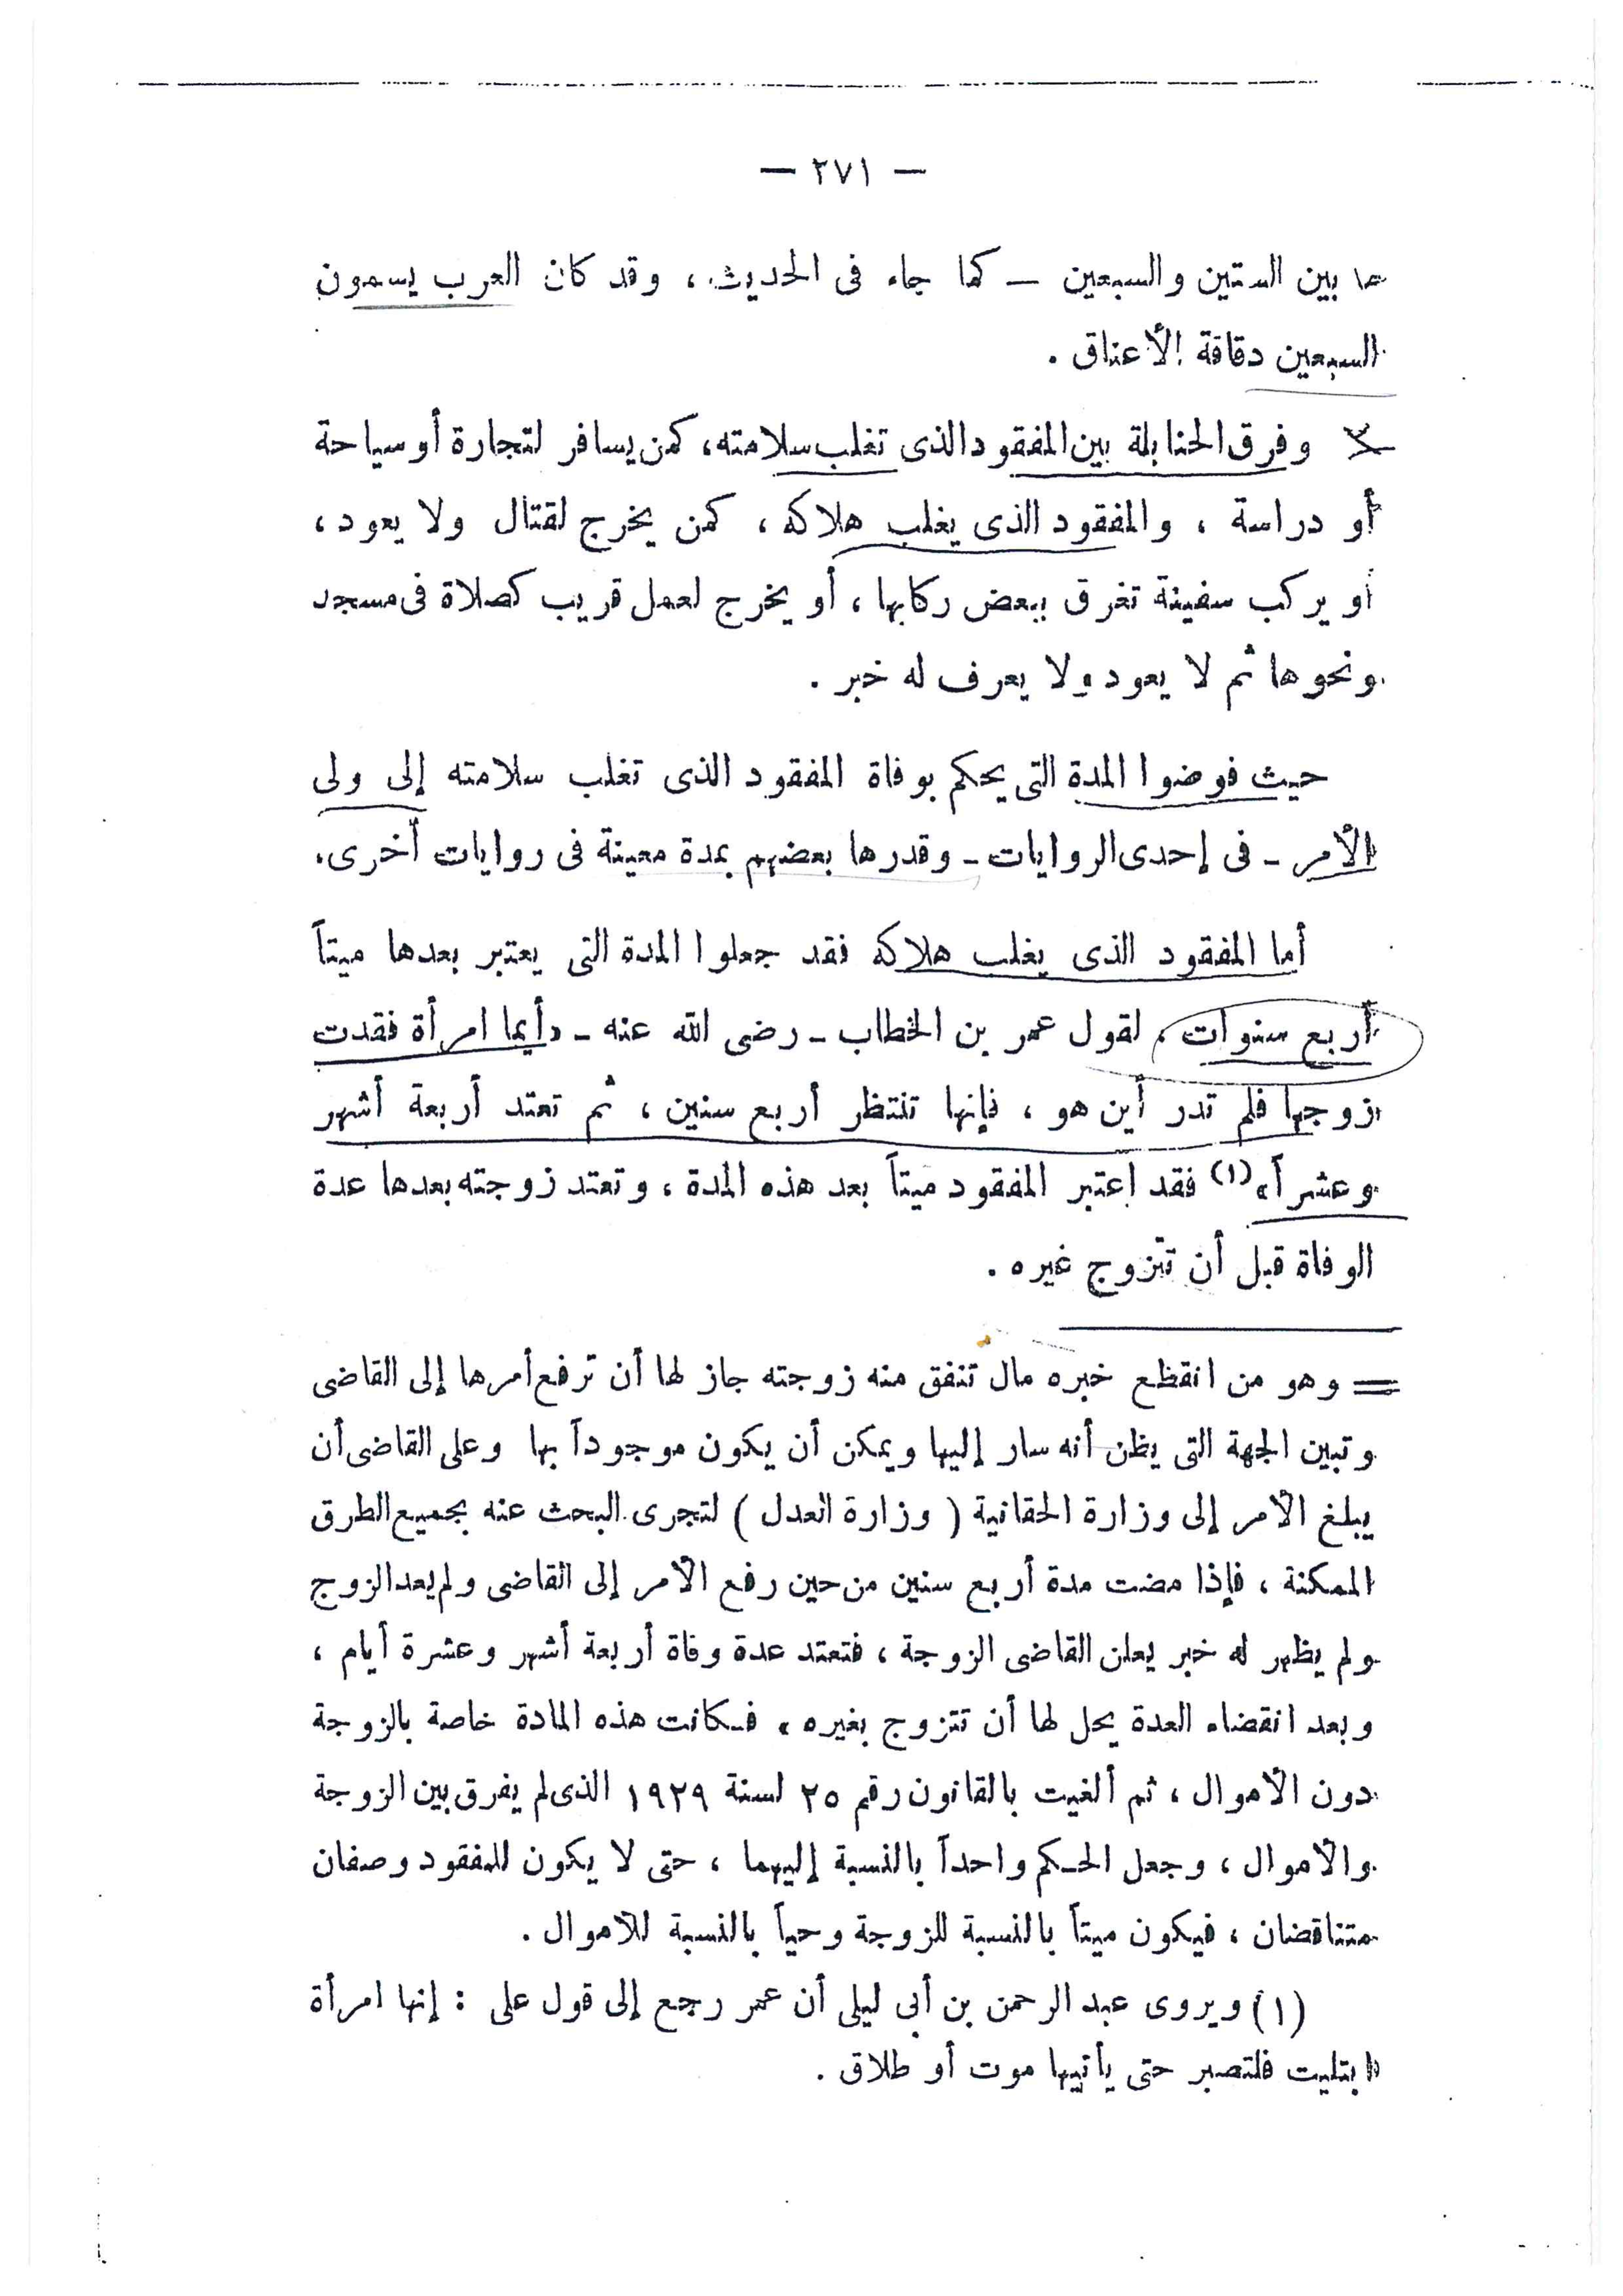 — ٢٧١ —
ما بين الستين والسبعين — كما جاء فى الحديث ، وقد كان العرب يسمون
السبعين دقاقة الأعناق .
وفرق الحنابلة بين المفقود الذى تغلب سلامته، كمن يسافر لتجارة أو سياحة
أو دراسة ، والمفقود الذى يغلب هلاكه ، كمن يخرج لقتال ولا يعود ،
أو يركب سفينة تغرق ببعض ركابها ، أو يخرج لعمل قريب كصلاة فى مسجد
ونحوها ثم لا يعود ولا يعرف له خبر .
حيث فوضوا المدة التى يحكم بوفاة المفقود الذى تغلب سلامته إلى ولى
الأمر - فى إحدى الروايات - وقدرها بعضهم بمدة معينة فى روايات أخرى .
أما المفقود الذى يغلب هلاكه فقد جعلوا المدة التى يعتبر بعدها ميتاً
أربع سنوات ، لقول عمر بن الخطاب - رضى الله عنه - « أيما امرأة فقدت
زوجها فلم تدر أين هو ، فإنها تنتظر أربع سنين ، ثم تعتد أربعة أشهر
وعشراً »(١) فقد اعتبر المفقود ميتاً بعد هذه المدة ، وتعتد زوجته بعدها عدة
الوفاة قبل أن تتزوج غيره .
= وهو من انقظع خبره مال تنفق منه زوجته جاز لها أن ترفع أمرها إلى القاضى
وتبين الجهة التى يظن أنه سار إليها ويمكن أن يكون موجوداً بها وعلى القاضى أن
يبلغ الأمر إلى وزارة الحقانية ( وزارة العدل ) لتجرى البحث عنه بجميع الطرق
الممكنة ، فإذا مضت مدة أربع سنين من حين رفع الأمر إلى القاضى ولم يعد الزوج
ولم يظهر له خبر يعلن القاضى الزوجة ، فتعتد عدة وفاة أربعة أشهر وعشرة أيام ،
وبعد انقضاء العدة يحل لها أن تتزوج بغيره » فكانت هذه المادة خاصة بالزوجة
دون الأموال ، ثم ألغيت بالقانون رقم ٢٥ لسنة ١٩٢٩ الذى لم يفرق بين الزوجة
والأموال ، وجعل الحكم واحداً بالنسبة إليهما ، حتى لا يكون للمفقود وصفان
متناقضان ، فيكون ميتاً بالنسبة للزوجة وحياً بالنسبة للأموال .
(١) ويروى عبد الرحمن بن أبى ليلى أن عمر رجع إلى قول على : إنها امرأة
ابتليت فلتصبر حتى يأتيها موت أو طلاق .